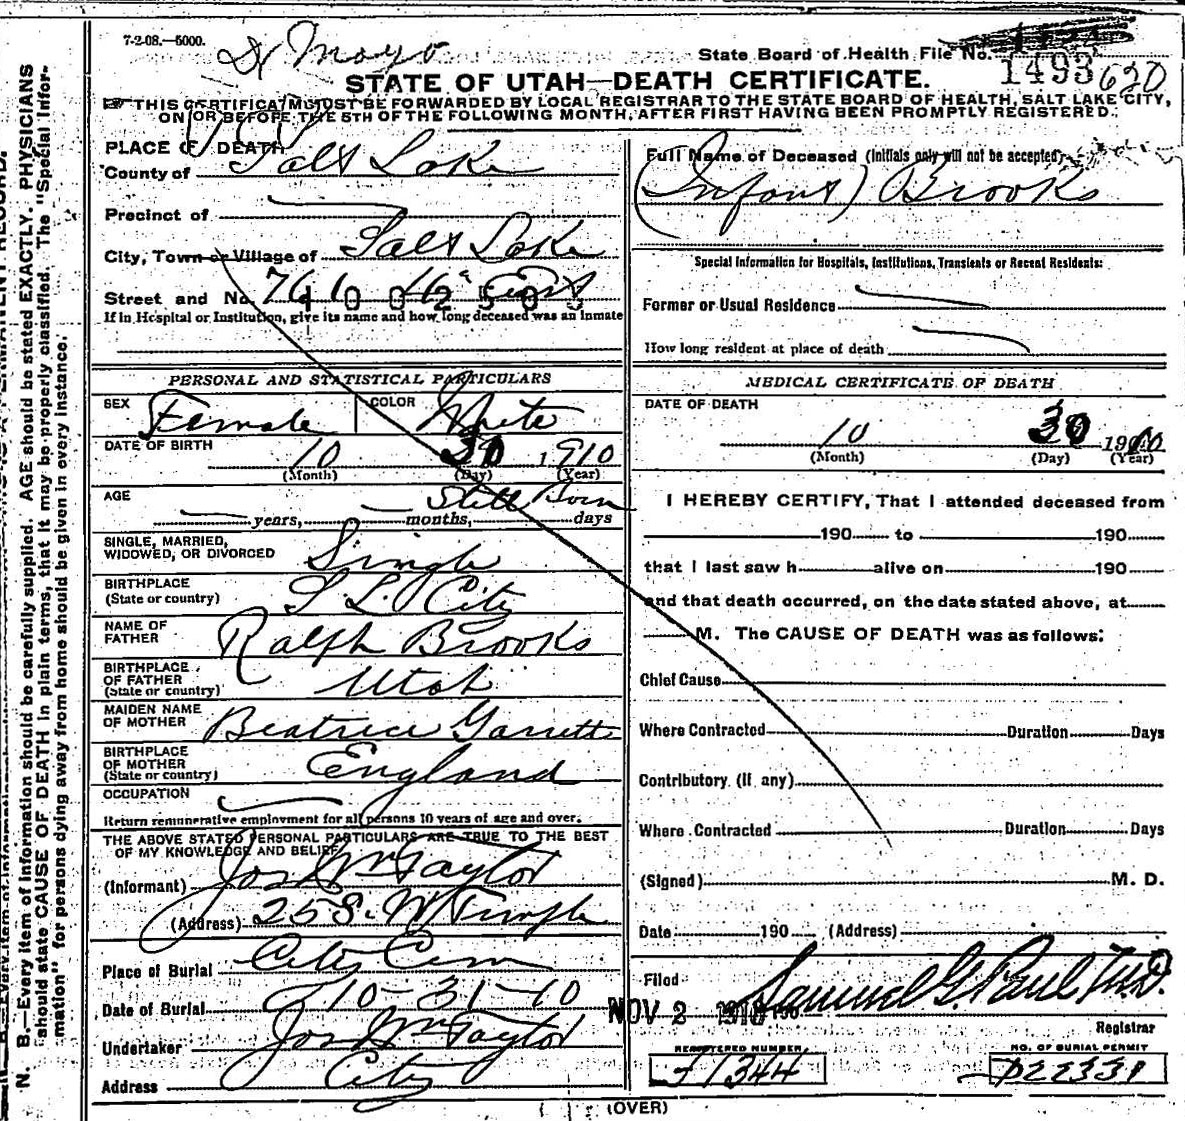 7-2-08.—5000.
Dr Mayo
State Board of Health File No. 1493 620
STATE OF UTAH—DEATH CERTIFICATE.
THIS CERTIFICATE MUST BE FORWARDED BY LOCAL REGISTRAR TO THE STATE BOARD OF HEALTH, SALT LAKE CITY,
ON OR BEFORE THE 5TH OF THE FOLLOWING MONTH, AFTER FIRST HAVING BEEN PROMPTLY REGISTERED.
PLACE OF DEATH
County of Salt Lake
Precinct of
City, Town or Village of Salt Lake
Street and No.
If in Hospital or Institution, give its name and how long deceased was an inmate
Full Name of Deceased (Initials only will not be accepted)
(Infant) Brooks
Special Information for Hospitals, Institutions, Transients or Recent Residents:
Former or Usual Residence
How long resident at place of death
PERSONAL AND STATISTICAL PARTICULARS
SEX Female COLOR White
DATE OF BIRTH 10 30 1910
(Month) (Day) (Year)
AGE Still Born
years, months, days
SINGLE, MARRIED,
WIDOWED, OR DIVORCED Single
BIRTHPLACE
(State or country) S L City
NAME OF
FATHER Ralph Brooks
BIRTHPLACE
OF FATHER
(State or country) Utah
MAIDEN NAME
OF MOTHER Beatrice Garrett
BIRTHPLACE
OF MOTHER
(State or country) England
OCCUPATION
Return remunerative employment for all persons 10 years of age and over.
THE ABOVE STATED PERSONAL PARTICULARS ARE TRUE TO THE BEST
OF MY KNOWLEDGE AND BELIEF
(Informant) Jos Wm Taylor
(Address) 25 S. W Temple
Place of Burial City Cem
Date of Burial 10-31-10
Undertaker Jos Wm Taylor
Address City
MEDICAL CERTIFICATE OF DEATH
DATE OF DEATH
10 30 1910
(Month) (Day) (Year)
I HEREBY CERTIFY, That I attended deceased from
190 to 190
that I last saw h alive on 190
and that death occurred, on the date stated above, at
M. The CAUSE OF DEATH was as follows:
Chief Cause
Where Contracted Duration Days
Contributory (if any)
Where Contracted Duration Days
(Signed) M. D.
Date 190 (Address)
Filed NOV 2 1910 Samuel G. Paul M.D.
Registrar
REGISTERED NUMBER
NO. OF BURIAL PERMIT
J1344
D22331
(OVER)
N. B.—Every item of information should be carefully supplied. AGE should be stated EXACTLY. PHYSICIANS
should state CAUSE OF DEATH in plain terms, that it may be properly classified. The "Special Infor-
mation" for persons dying away from home should be given in every instance.